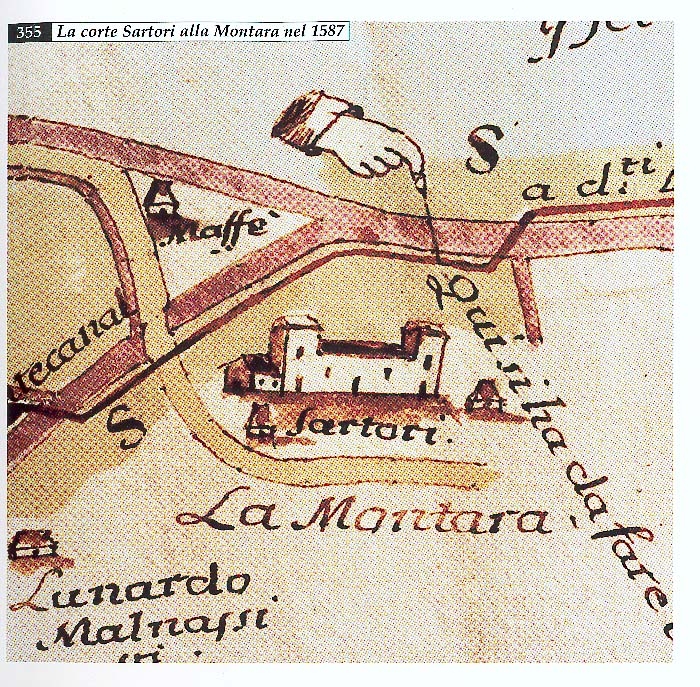 355 La corte Sartori alla Montara nel 1587
S
a d.ti
Maffè
tecanal
S
Sartori.
Qui si ha da fare
La Montara.
Lunardo
Malnassi